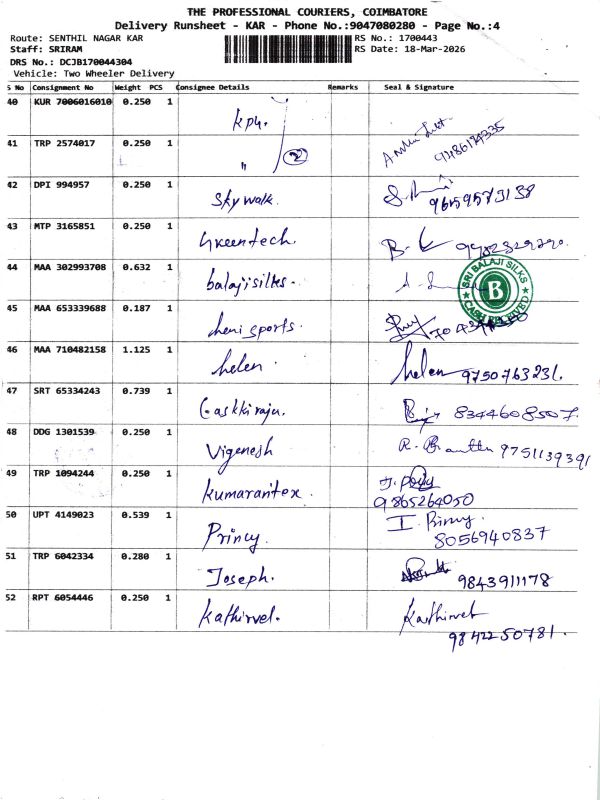 THE PROFESSIONAL COURIERS, COIMBATORE
Delivery Runsheet - KAR - Phone No.:9047080280 - Page No.:4
Route: SENTHIL NAGAR KAR RS No.: 1700443
Staff: SRIRAM RS Date: 18-Mar-2026
DRS No.: DCJB170044304
Vehicle: Two Wheeler Delivery
S No Consignment No Weight PCS Consignee Details Remarks Seal & Signature
40 KUR 7006016010 0.250 1 kpy.
41 TRP 2574017 0.250 1 " 2
42 DPI 994957 0.250 1 Skywalk. 9659573138
43 MTP 3165851 0.250 1 Greentech.
44 MAA 302993708 0.632 1 balajisilks. SRI BALAJI SILKS B
45 MAA 653339688 0.187 1 cheni sports.
46 MAA 710482158 1.125 1 helen. helen 9750763231.
47 SRT 65334243 0.739 1 8344608507.
48 DDG 1301539 0.250 1 Vigenesh 9751139391
49 TRP 1094244 0.250 1 Kumarantex. 9865264050
50 UPT 4149023 0.539 1 Princy. 8056940837
51 TRP 6042334 0.280 1 Joseph. 9843911178
52 RPT 6054446 0.250 1 Kathirvel. Kathirvel 9842250781.